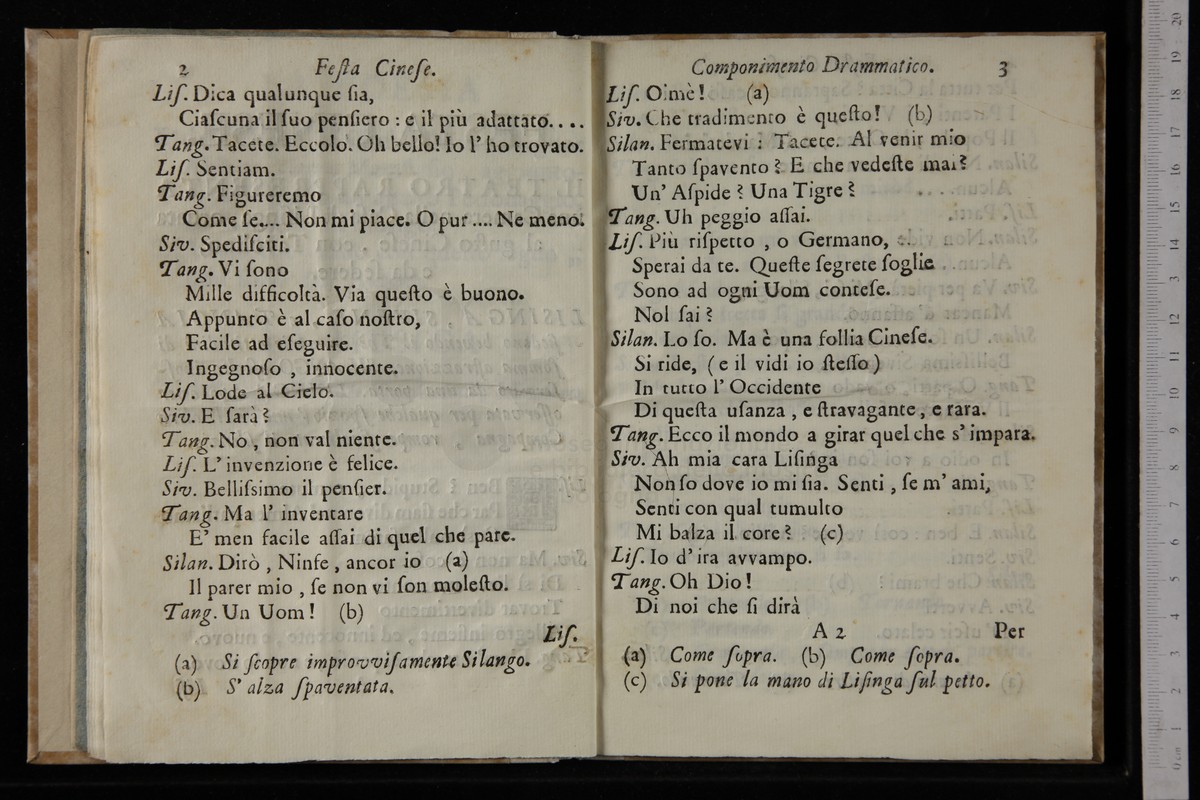 2 Feſta Cineſe.
Liſ. Dica qualunque ſia,
Ciaſcuna il ſuo penſiero : e il più adattato....
Tang. Tacete. Eccolo. Oh bello! Io l' ho trovato.
Liſ. Sentiam.
Tang. Figureremo
Come ſe.... Non mi piace. O pur .... Ne meno.
Siv. Spediſciti.
Tang. Vi ſono
Mille difficoltà. Via queſto è buono.
Appunto è al caſo noſtro,
Facile ad eſeguire.
Ingegnoſo , innocente.
Liſ. Lode al Cielo.
Siv. E ſarà?
Tang. No , non val niente.
Liſ. L' invenzione è felice.
Siv. Belliſsimo il penſier.
Tang. Ma l' inventare
E' men facile aſſai di quel che pare.
Silan. Dirò , Ninfe , ancor io (a)
Il parer mio , ſe non vi ſon moleſto.
Tang. Un Uom! (b)
Liſ.
(a) Si ſcopre improvviſamente Silango.
(b) S' alza ſpaventata.
Componimento Drammatico. 3
Liſ. Oimè! (a)
Siv. Che tradimento è queſto! (b)
Silan. Fermatevi : Tacete. Al venir mio
Tanto ſpavento? E che vedeſte mai?
Un' Aſpide? Una Tigre?
Tang. Uh peggio aſſai.
Liſ. Più riſpetto , o Germano,
Sperai da te. Queſte ſegrete ſoglie
Sono ad ogni Uom conteſe.
Nol ſai?
Silan. Lo ſo. Ma è una follia Cineſe.
Si ride, (e il vidi io ſteſſo)
In tutto l' Occidente
Di queſta uſanza , e ſtravagante, e rara.
Tang. Ecco il mondo a girar quel che s' impara.
Siv. Ah mia cara Liſinga
Non ſo dove io mi ſia. Senti , ſe m' ami,
Senti con qual tumulto
Mi balza il core? (c)
Liſ. Io d' ira avvampo.
Tang. Oh Dio!
Di noi che ſi dirà
A 2 Per
(a) Come ſopra. (b) Come ſopra.
(c) Si pone la mano di Liſinga ſul petto.